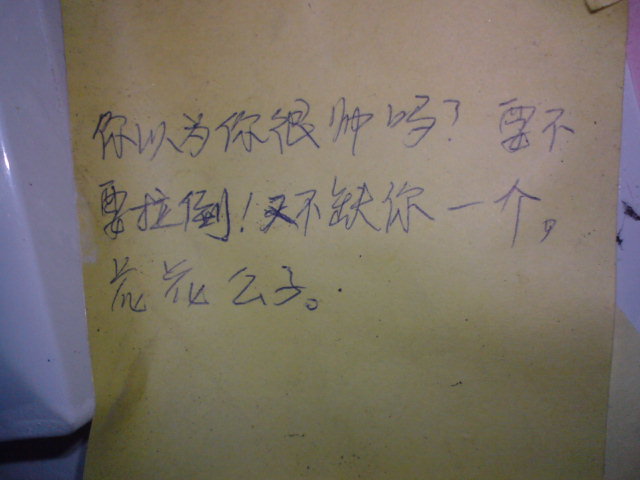 你以为你很帅吗？要不
要拉倒！又不缺你一个，
花花公子。